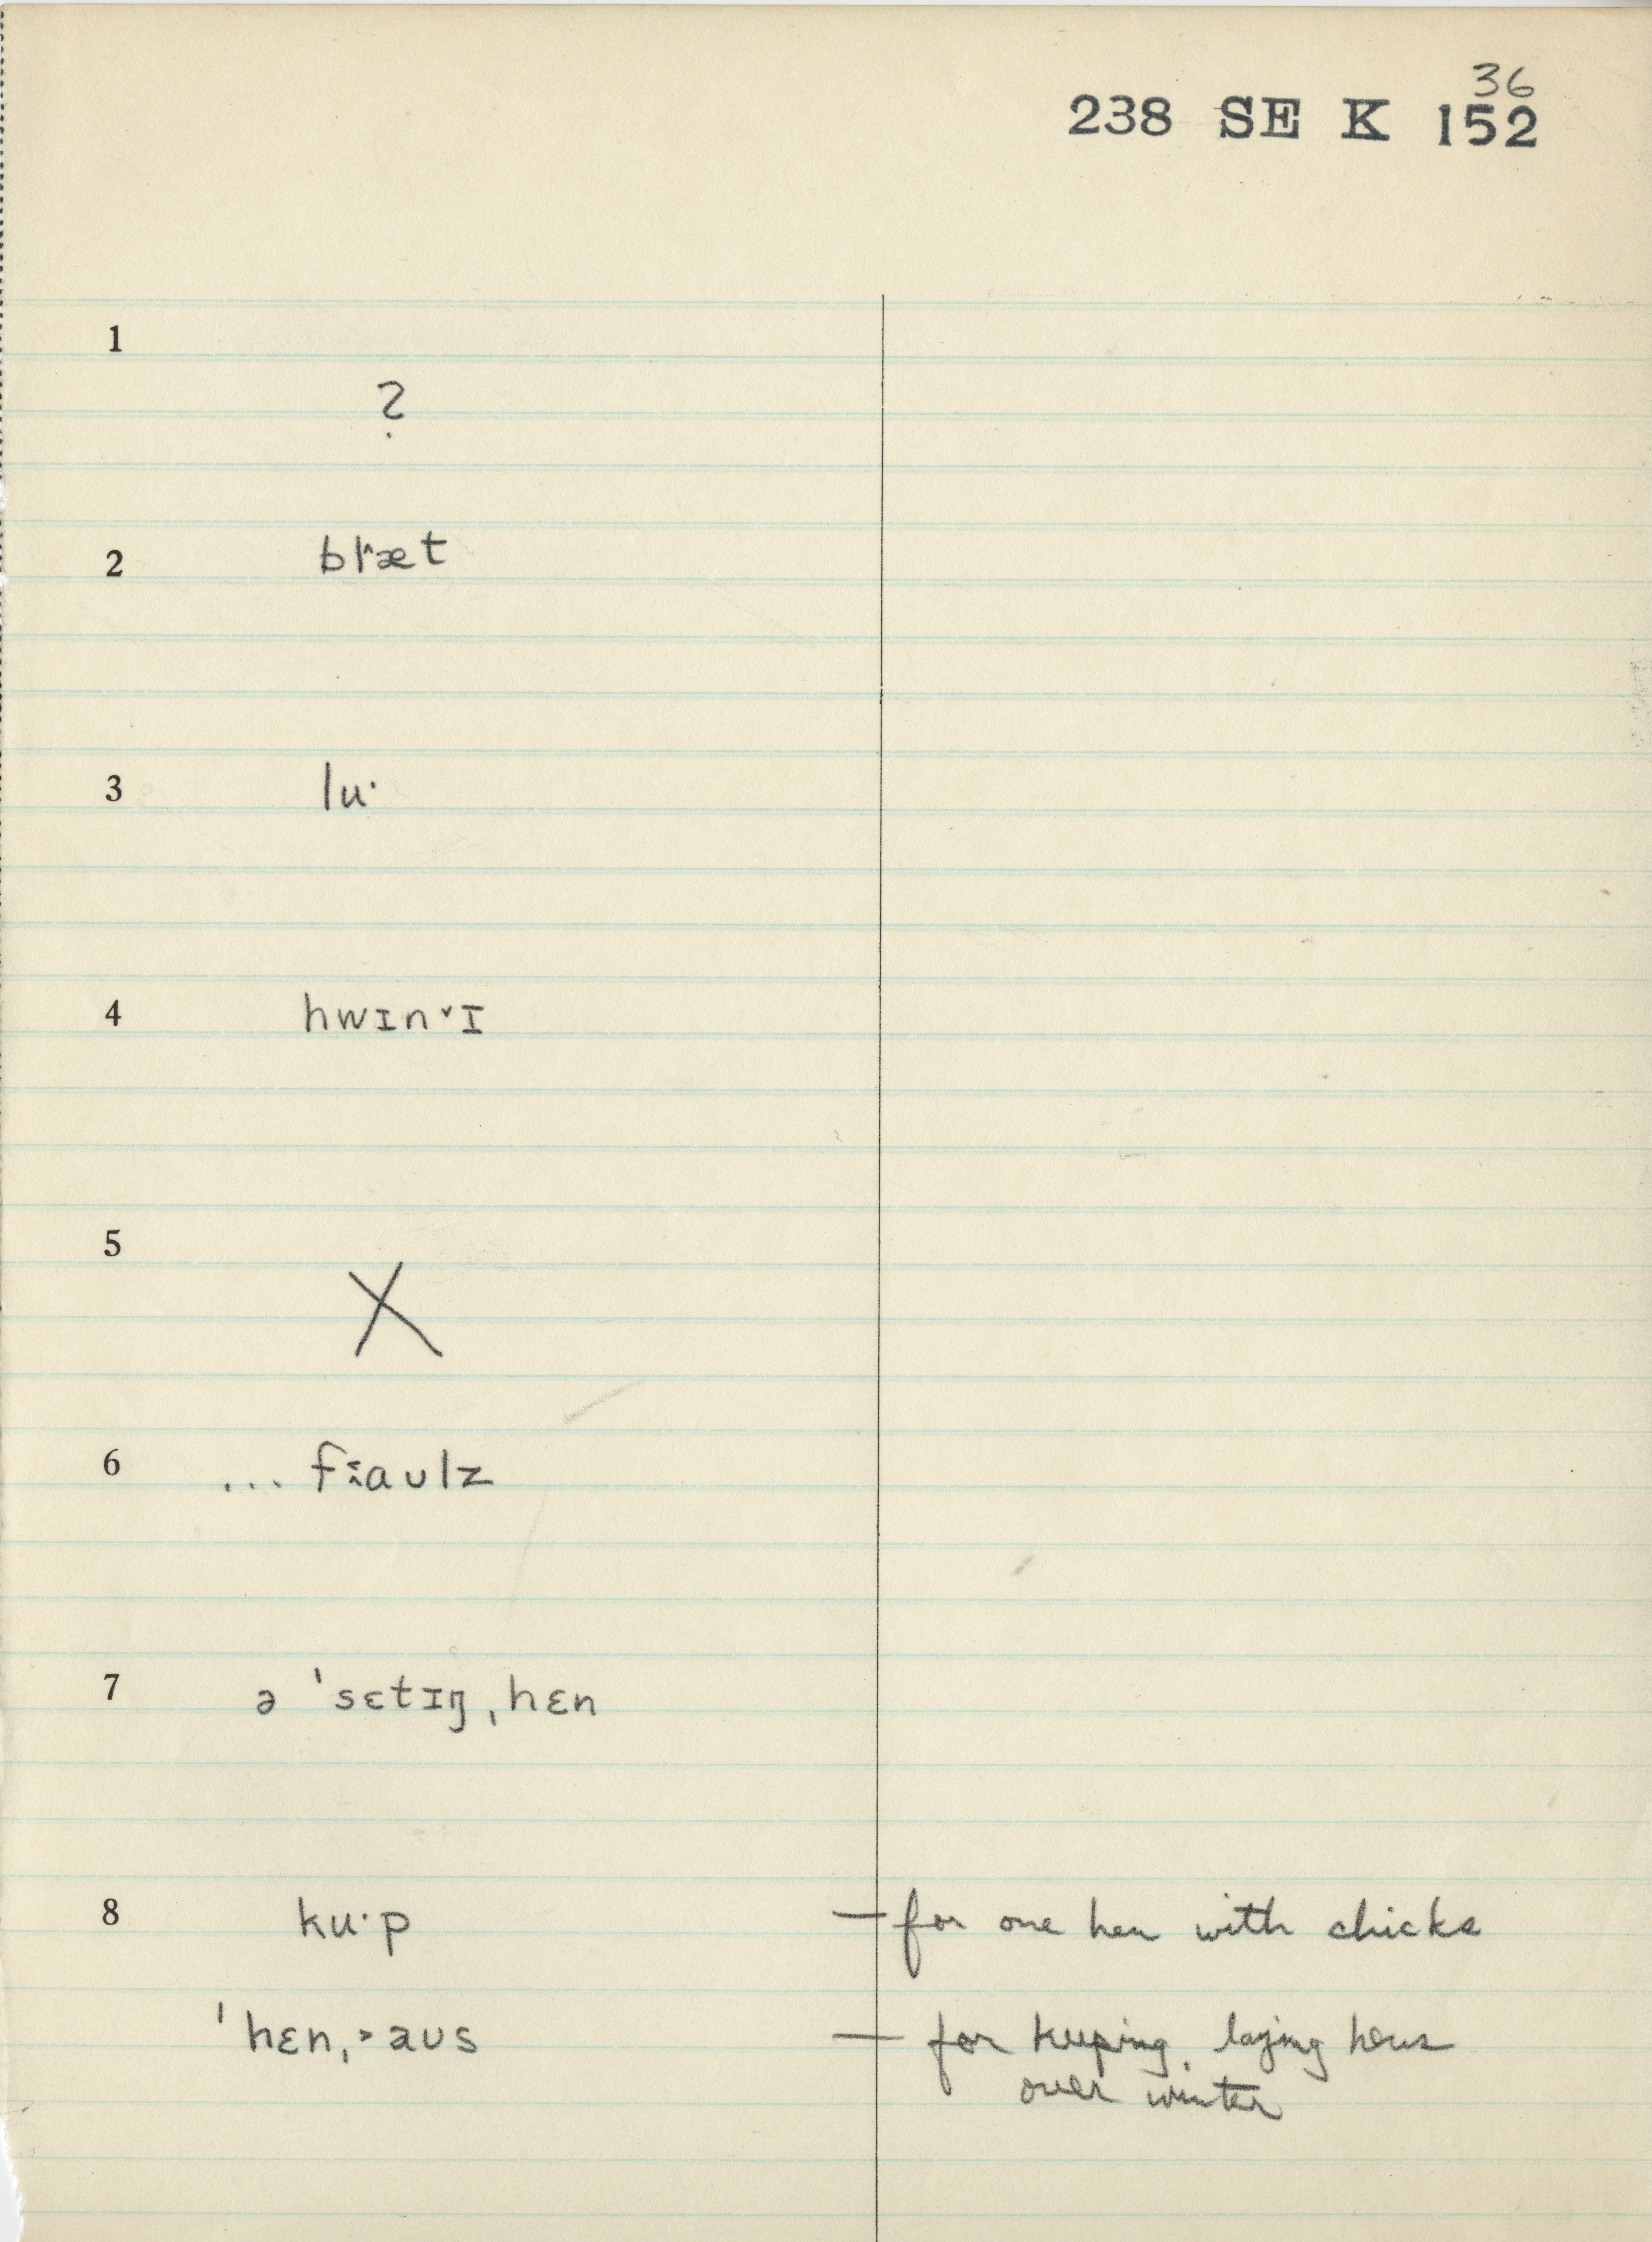 36
238 SE K 152
1
?
2 bl˄æt
3 luˑ
4 hwɪn˅ɪ
5
X
6 ... faʊlz
7 ə ˈsɛtɪŋˌhɛn
8 kuˑp — for one hen with chicks
ˈhɛnˌ˃aʊs — for keeping laying hens
over winter